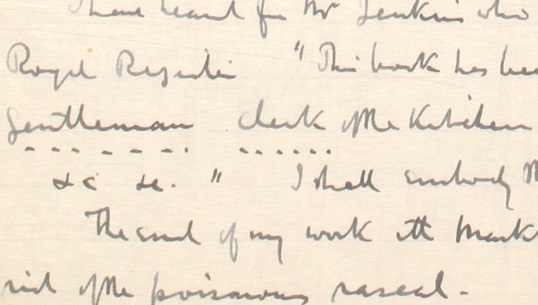 I have heard fr Mr Jenkins who
Royal Register "This book has bee
Gentleman Clerk of the Kitchen
&c &c. " I shall embody
The end of my work at the
rid of the poisonous rascal.